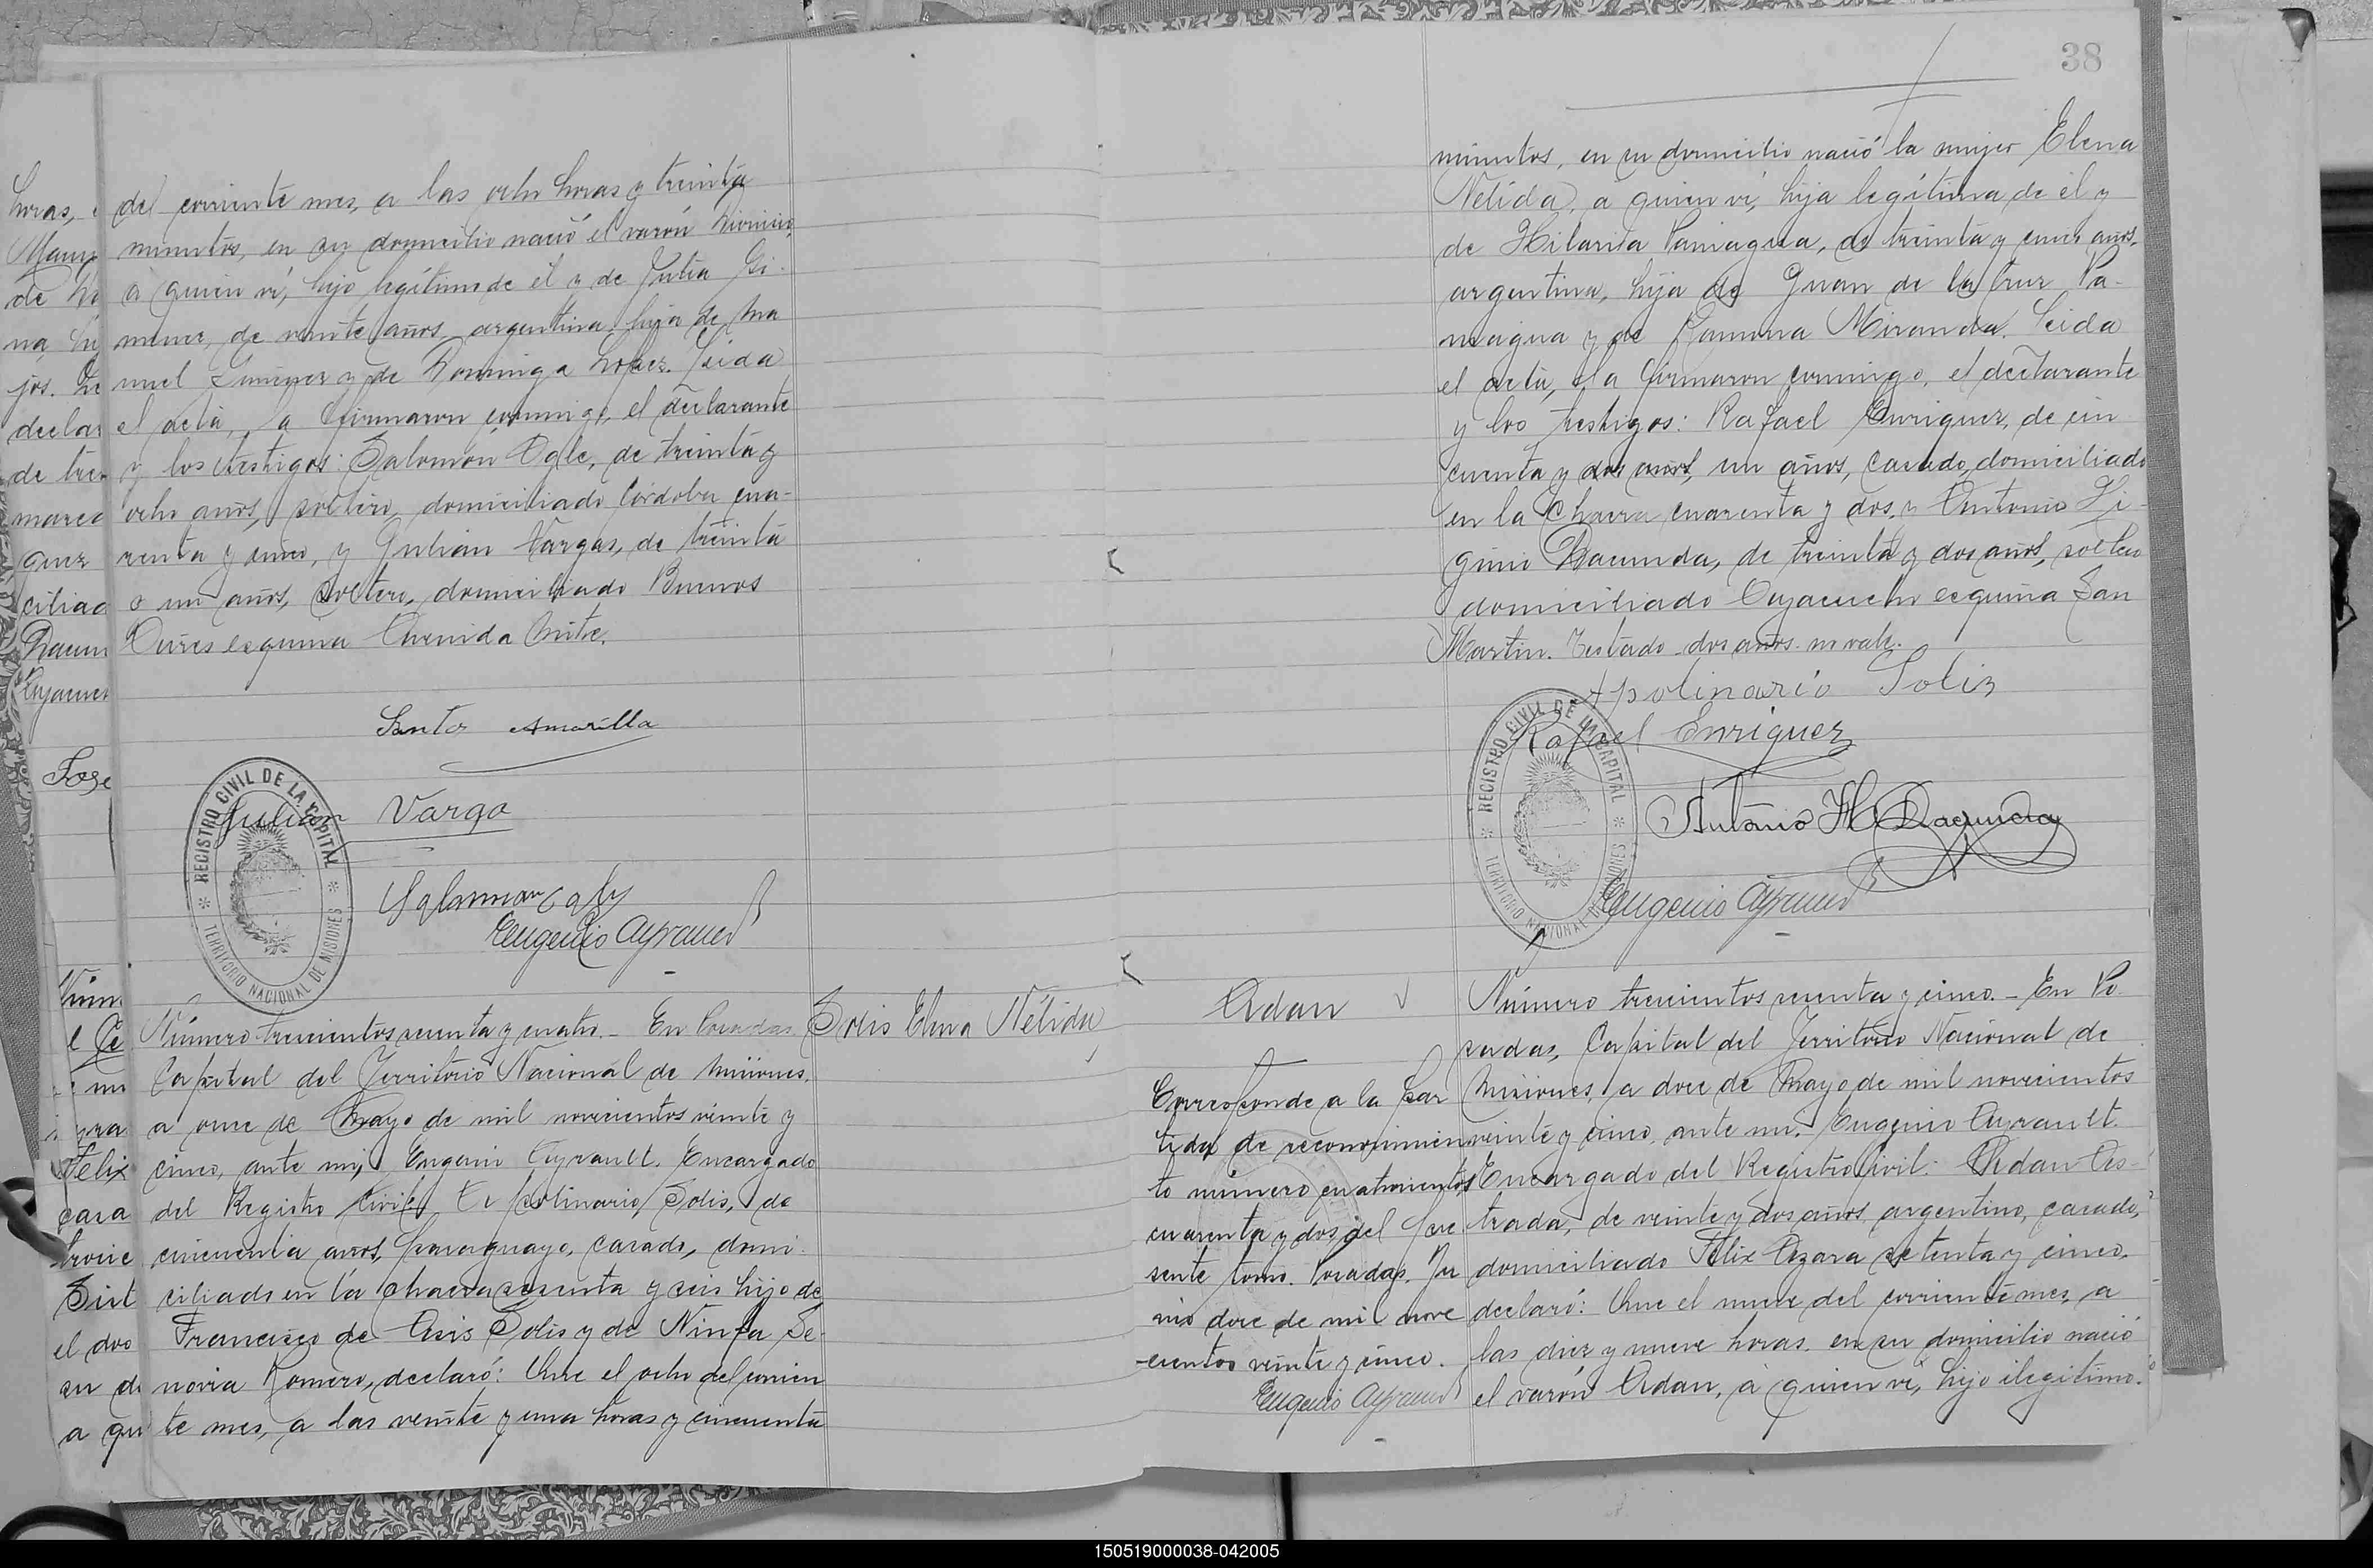 del corriente mes, a las ocho horas y treinta
minutos, en su domicilio nació el varón Dionicio,
á quien ví, hijo legítimo de él y de Julia Gi-
menez, de veinte años, argentina, hija de Ma
nuel Gimenez y de Dominga Lopez. Leida
el acta, la firmaron conmigo, el declarante
y los testigos: Salomón Ogle, de treinta y
ocho años, soltero, domiciliado Córdoba cua-
renta y cinco, y Julián Vargas, de treinta
o un años, soltero, domiciliado Buenos
Aires esquina Avenida Mitre.
Santos Amarilla
Julian Vargo
Eugenio Ayrault
REGISTRO CIVIL DE LA CAPITAL
TERRITORIO NACIONAL DE MISIONES
Solis Elena Nélida
Número trescientos sesenta y cuatro.- En Posadas,
Capital del Territorio Nacional de Misiones,
a once de Mayo de mil novecientos veinte y
cinco, ante mi, Eugenio Ayrault, Encargado
del Registro Civil, Apolinario Solis, de
cincuenta años, paraguayo, casado, domi-
ciliado en la chacra sesenta y seis hijo de
Francisco de Asis Solis y de Ninfa Se-
novia Romero, declaró: Que el ocho del corrien
te mes, a las veinte y una horas y cincuenta
38
minutos, en su domicilio nació la mujer Elena
Nélida, á quien ví, hija legítima de él y
de Hilarita Paniagua, de treinta y cinco años,
argentina, hija de Juan de la Cruz Pa-
niagua y de Ramona Miranda. Leida
el acta, la firmaron conmigo, el declarante
y los testigos: Rafael Enriquez, de cin
cuenta y dos años, un años, casado, domiciliado
en la Chacra cuarenta y dos, y Antonio Hi-
ginio Dacunda, de treinta y dos años, soltero
domiciliado Ayacucho esquina San
Martin. Testado-dos años-no vale.
Apolinario Solis
Rafael Enriquez
Antonio H Dacunda
Eugenio Ayrault
REGISTRO CIVIL DE LA CAPITAL
TERRITORIO NACIONAL DE MISIONES
Adan
Corresponde a la par
tida de reconocimien
to número cuatrocientos
cuarenta y dos del pre
sente tomo. Posadas, Ju
nio doce de mil nove
cientos veinte y cinco.
Eugenio Ayrault
Número trescientos sesenta y cinco.- En Po
sadas, Capital del Territorio Nacional de
Misiones, a doce de Mayo de mil novecientos
veinte y cinco, ante mi, Eugenio Ayrault
Encargado del Registro Civil: Adan Es-
trada, de veinte y dos años, argentino, casado,
domiciliado Félix Azara setenta y cinco,
declaró: Que el nueve del corriente mes, a
las diez y nueve horas, en su domicilio nació
el varón Adan, á quien ví, hijo ilegítimo.
150519000038-042005